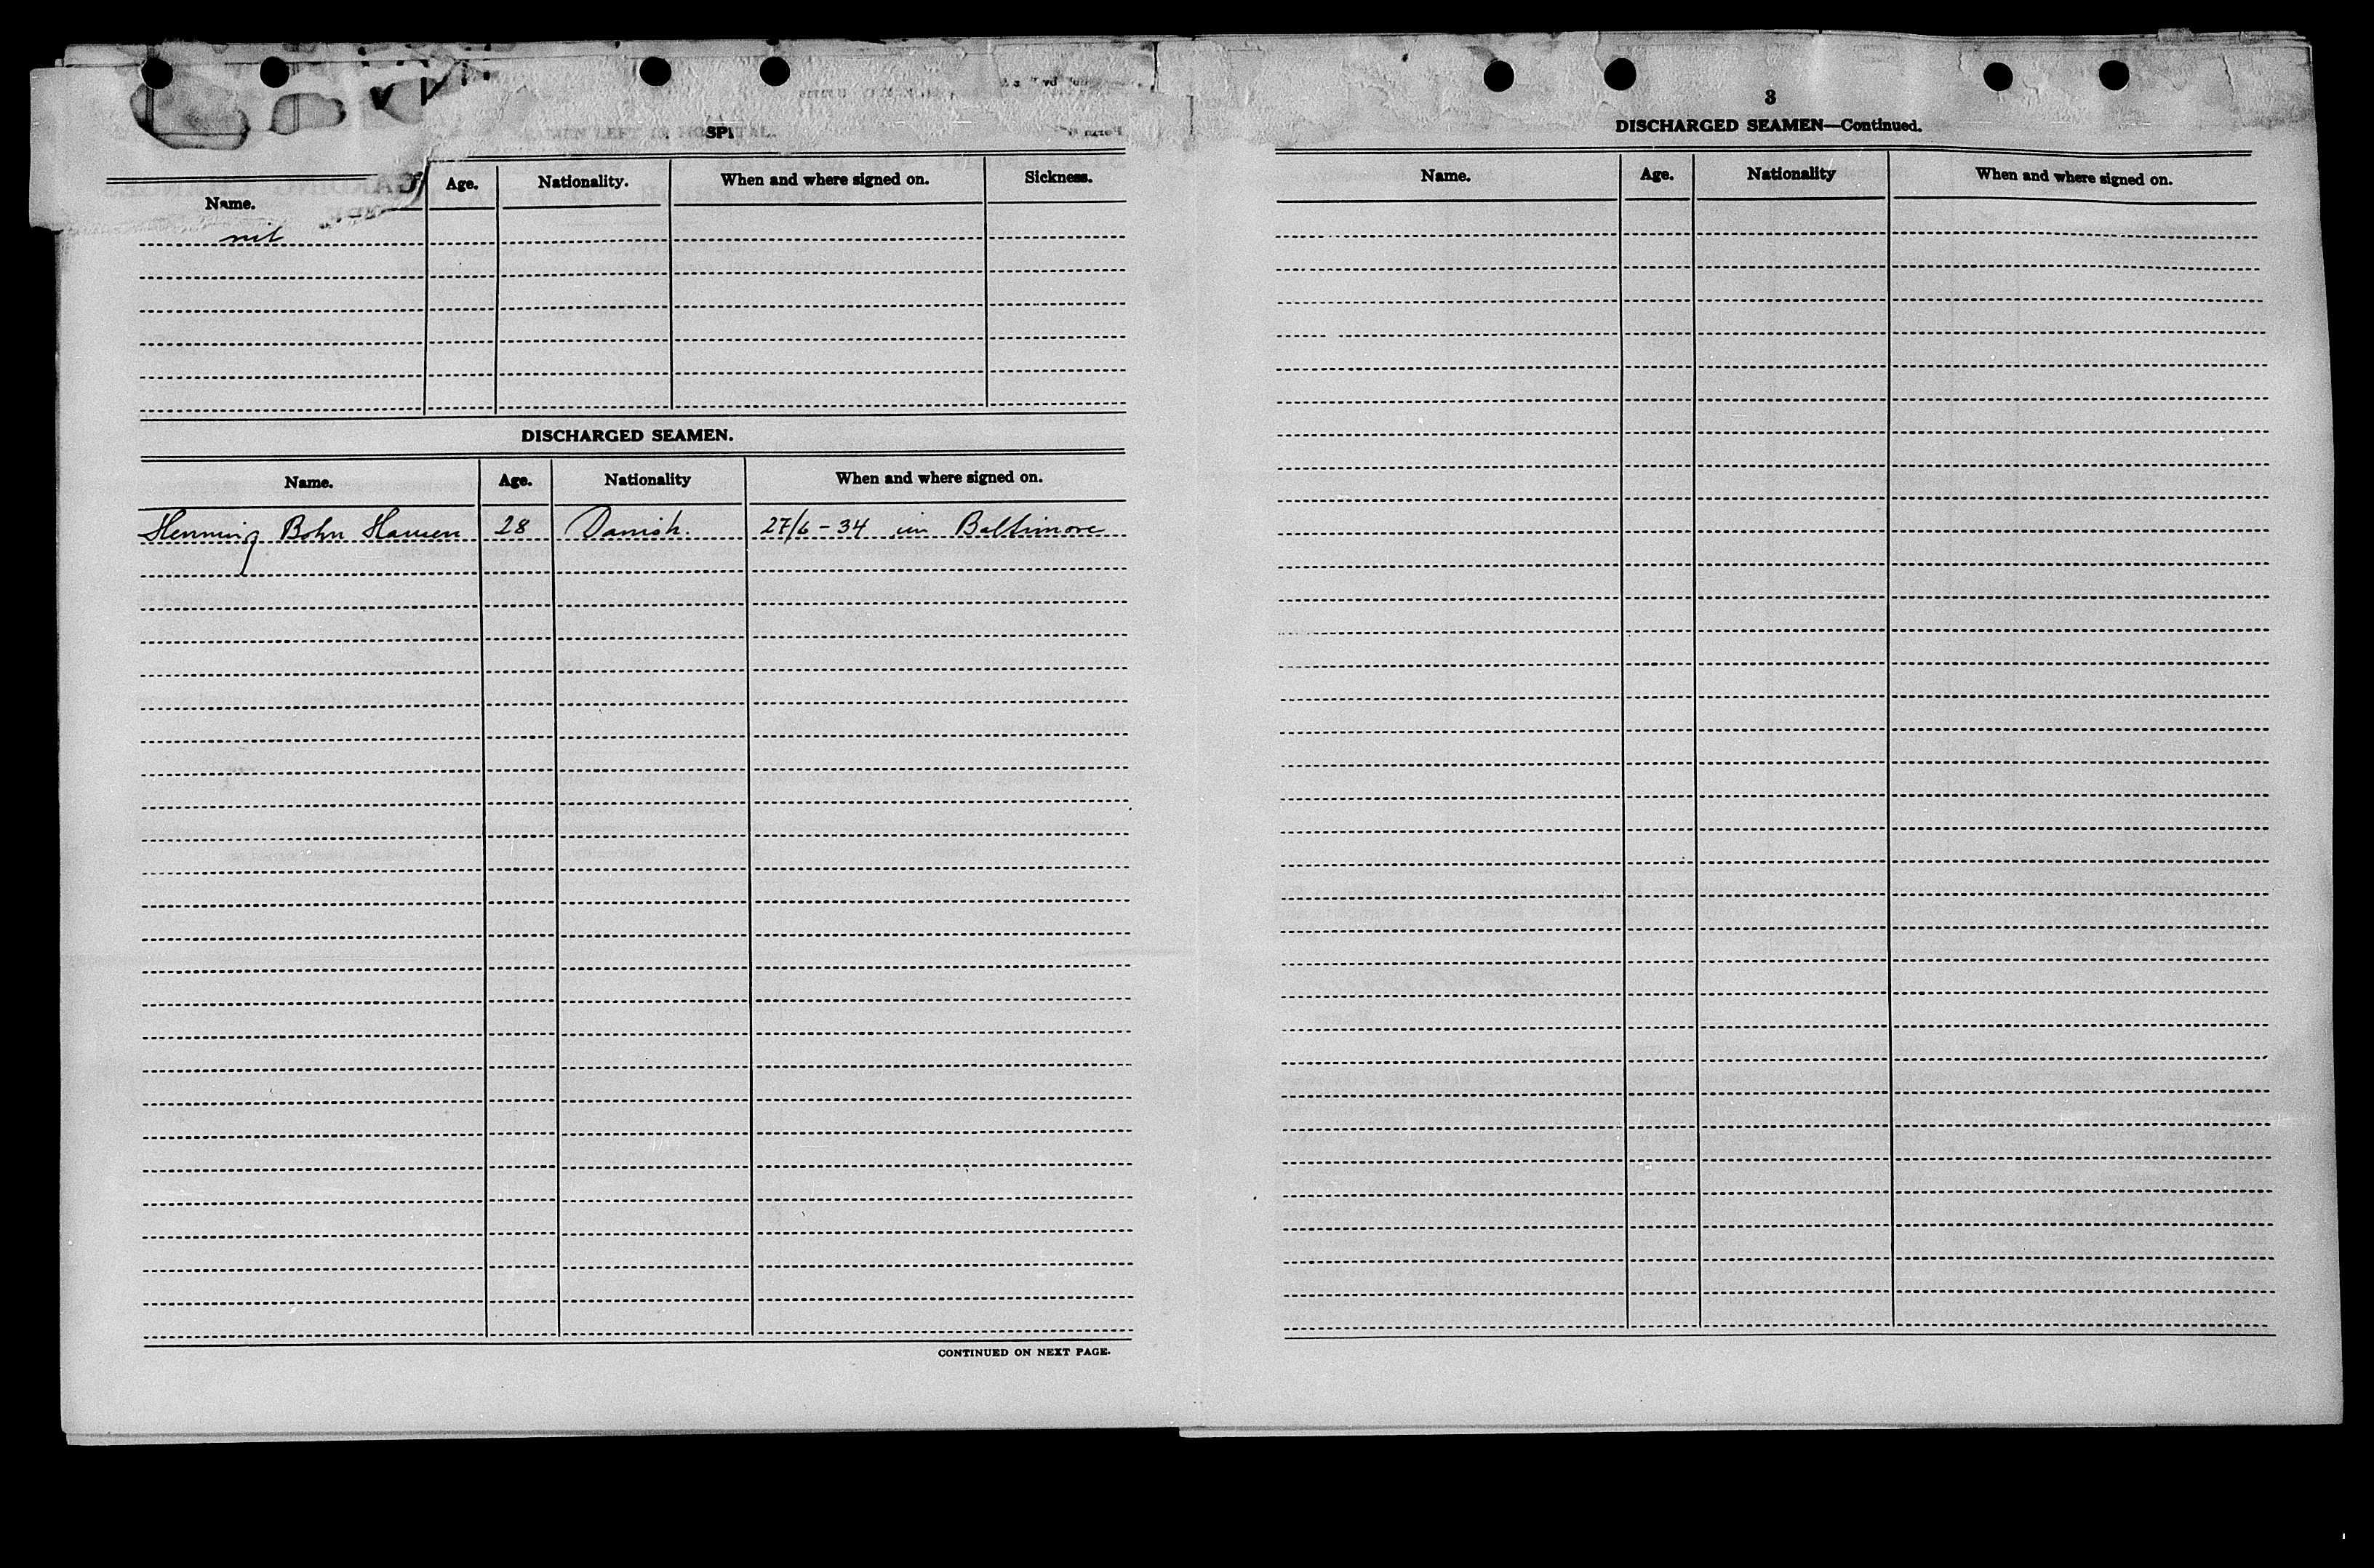 SEAMEN LEFT IN HOSPITAL.
Name. Age. Nationality. When and where signed on. Sickness.
nil
DISCHARGED SEAMEN.
Name. Age. Nationality When and where signed on.
Henning Bohn Hansen 28 Danish. 27/6-34 in Baltimore
CONTINUED ON NEXT PAGE.
3
DISCHARGED SEAMEN—Continued.
Name. Age. Nationality When and where signed on.